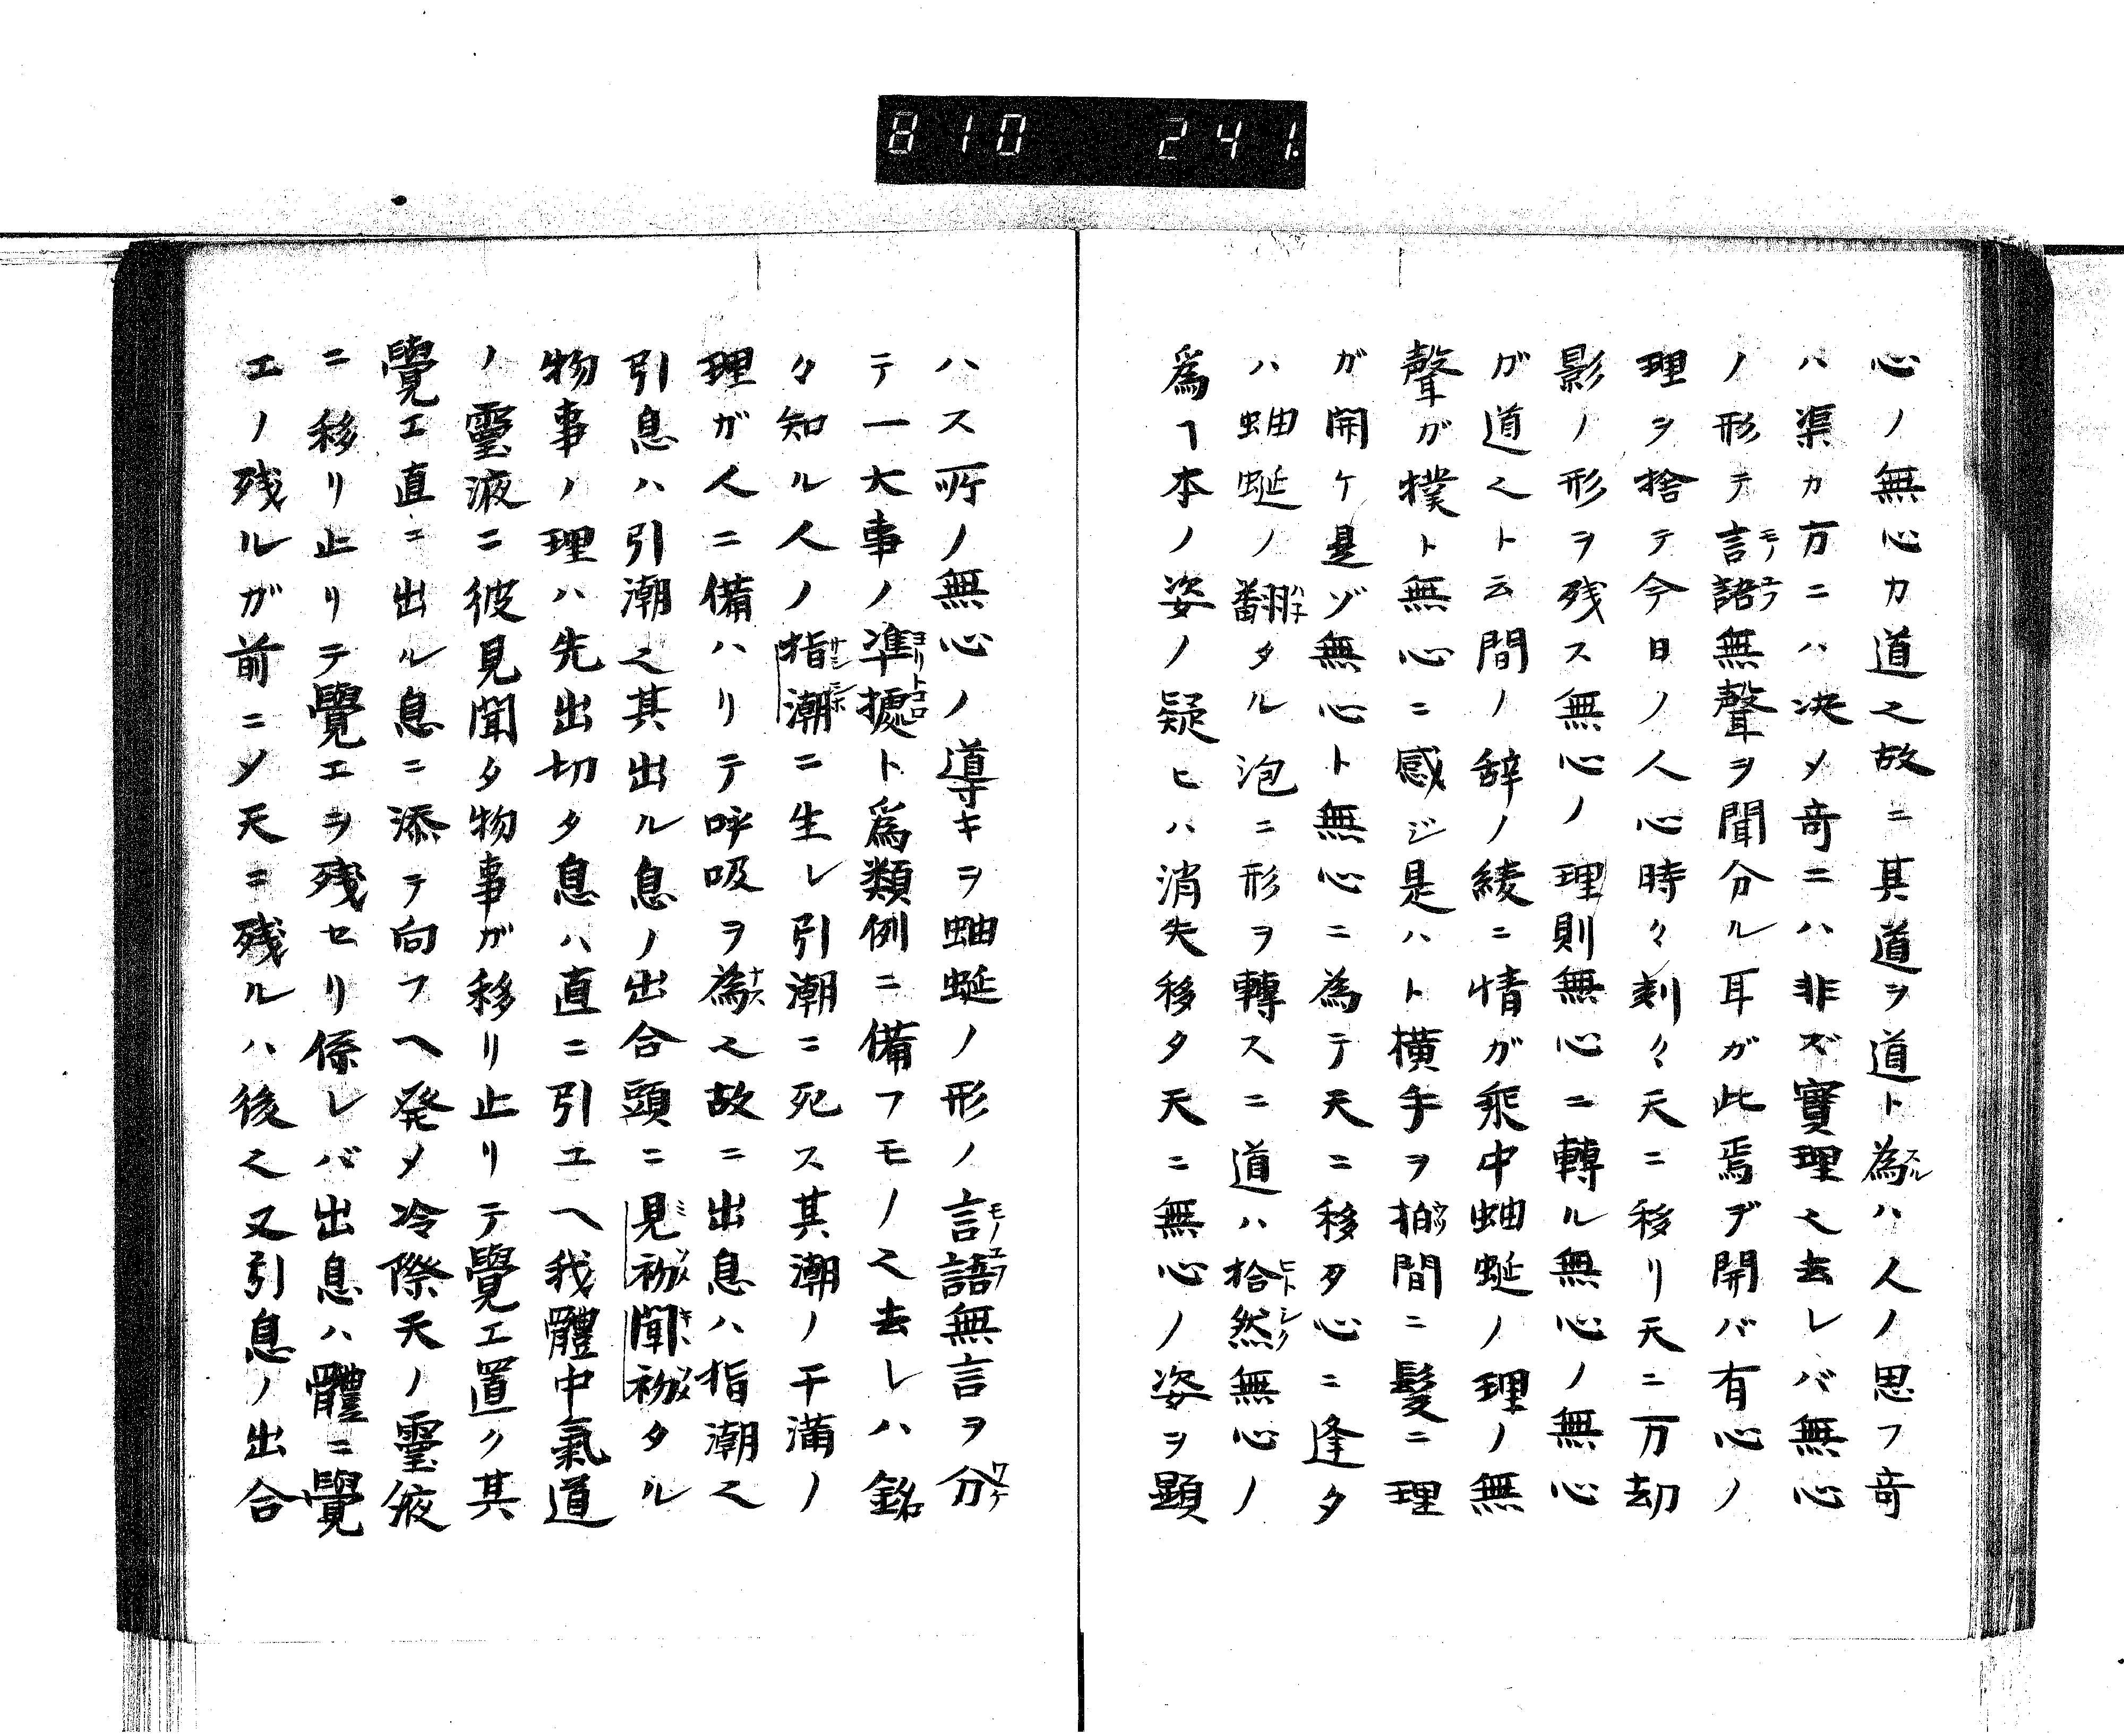 810 241.
心ノ無心カ道之故ニ其道ヲ道ト為スルハ人ノ思フ奇
ハ渠カ方ニハ决メ奇ニハ非ズ實理之去レバ無心
ノ形テ言語モノユフ無聲ヲ聞分ル耳ガ此焉デ開バ有心ノ
理ヲ捨テ今日ノ人心時々刻々天ニ移リ天ニ万劫
影ノ形ヲ残ス無心ノ理則無心ニ轉ル無心ノ無心
ガ道之ト云間ノ辞ノ綾ニ情ガ乘中蚰蜒ノ理ノ無
聲ガ撲ト無心ニ感ジ是ハト横手ヲ拍ウツ間ニ髪ニ理
ガ開ケ是ゾ無心ト無心ニ為テ天ニ移タ心ニ逢タ
ハ蚰蜒ノ翻ハネタル泡ニ形ヲ轉スニ道ハ拾然ヒトシク無心ノ
爲ヿ本ノ姿ノ疑ヒハ消失移タ天ニ無心ノ姿ヲ顕
ハス所ノ無心ノ導キヲ蚰蜒ノ形ノ言語モノユフ無言ヲ分ワケ
テ一大事ノ準據ヨリトコロト爲類例ニ備フモノ之去レハ銘
々知ル人ノ指潮サシシホニ生レ引潮ニ死ス其潮ノ干満ノ
理ガ人ニ備ハリテ呼吸ヲ為ナス之故ニ出息ハ指潮之
引息ハ引潮之其出ル息ノ出合頭ニ見初ミソメ聞初キヽソメタル
物事ノ理ハ先出切タ息ハ直ニ引エヘ我體中氣道
ノ靈液ニ彼見聞タ物事ガ移リ止リテ覺エ置ク其
覺エ直ニ出ル息ニ添テ向フヘ発メ冷際天ノ靈液
ニ移リ止リテ覺エヲ残セリ係レバ出息ハ體ニ覺
エノ残ルガ前ニメ天ニ残ルハ後之又引息ノ出合